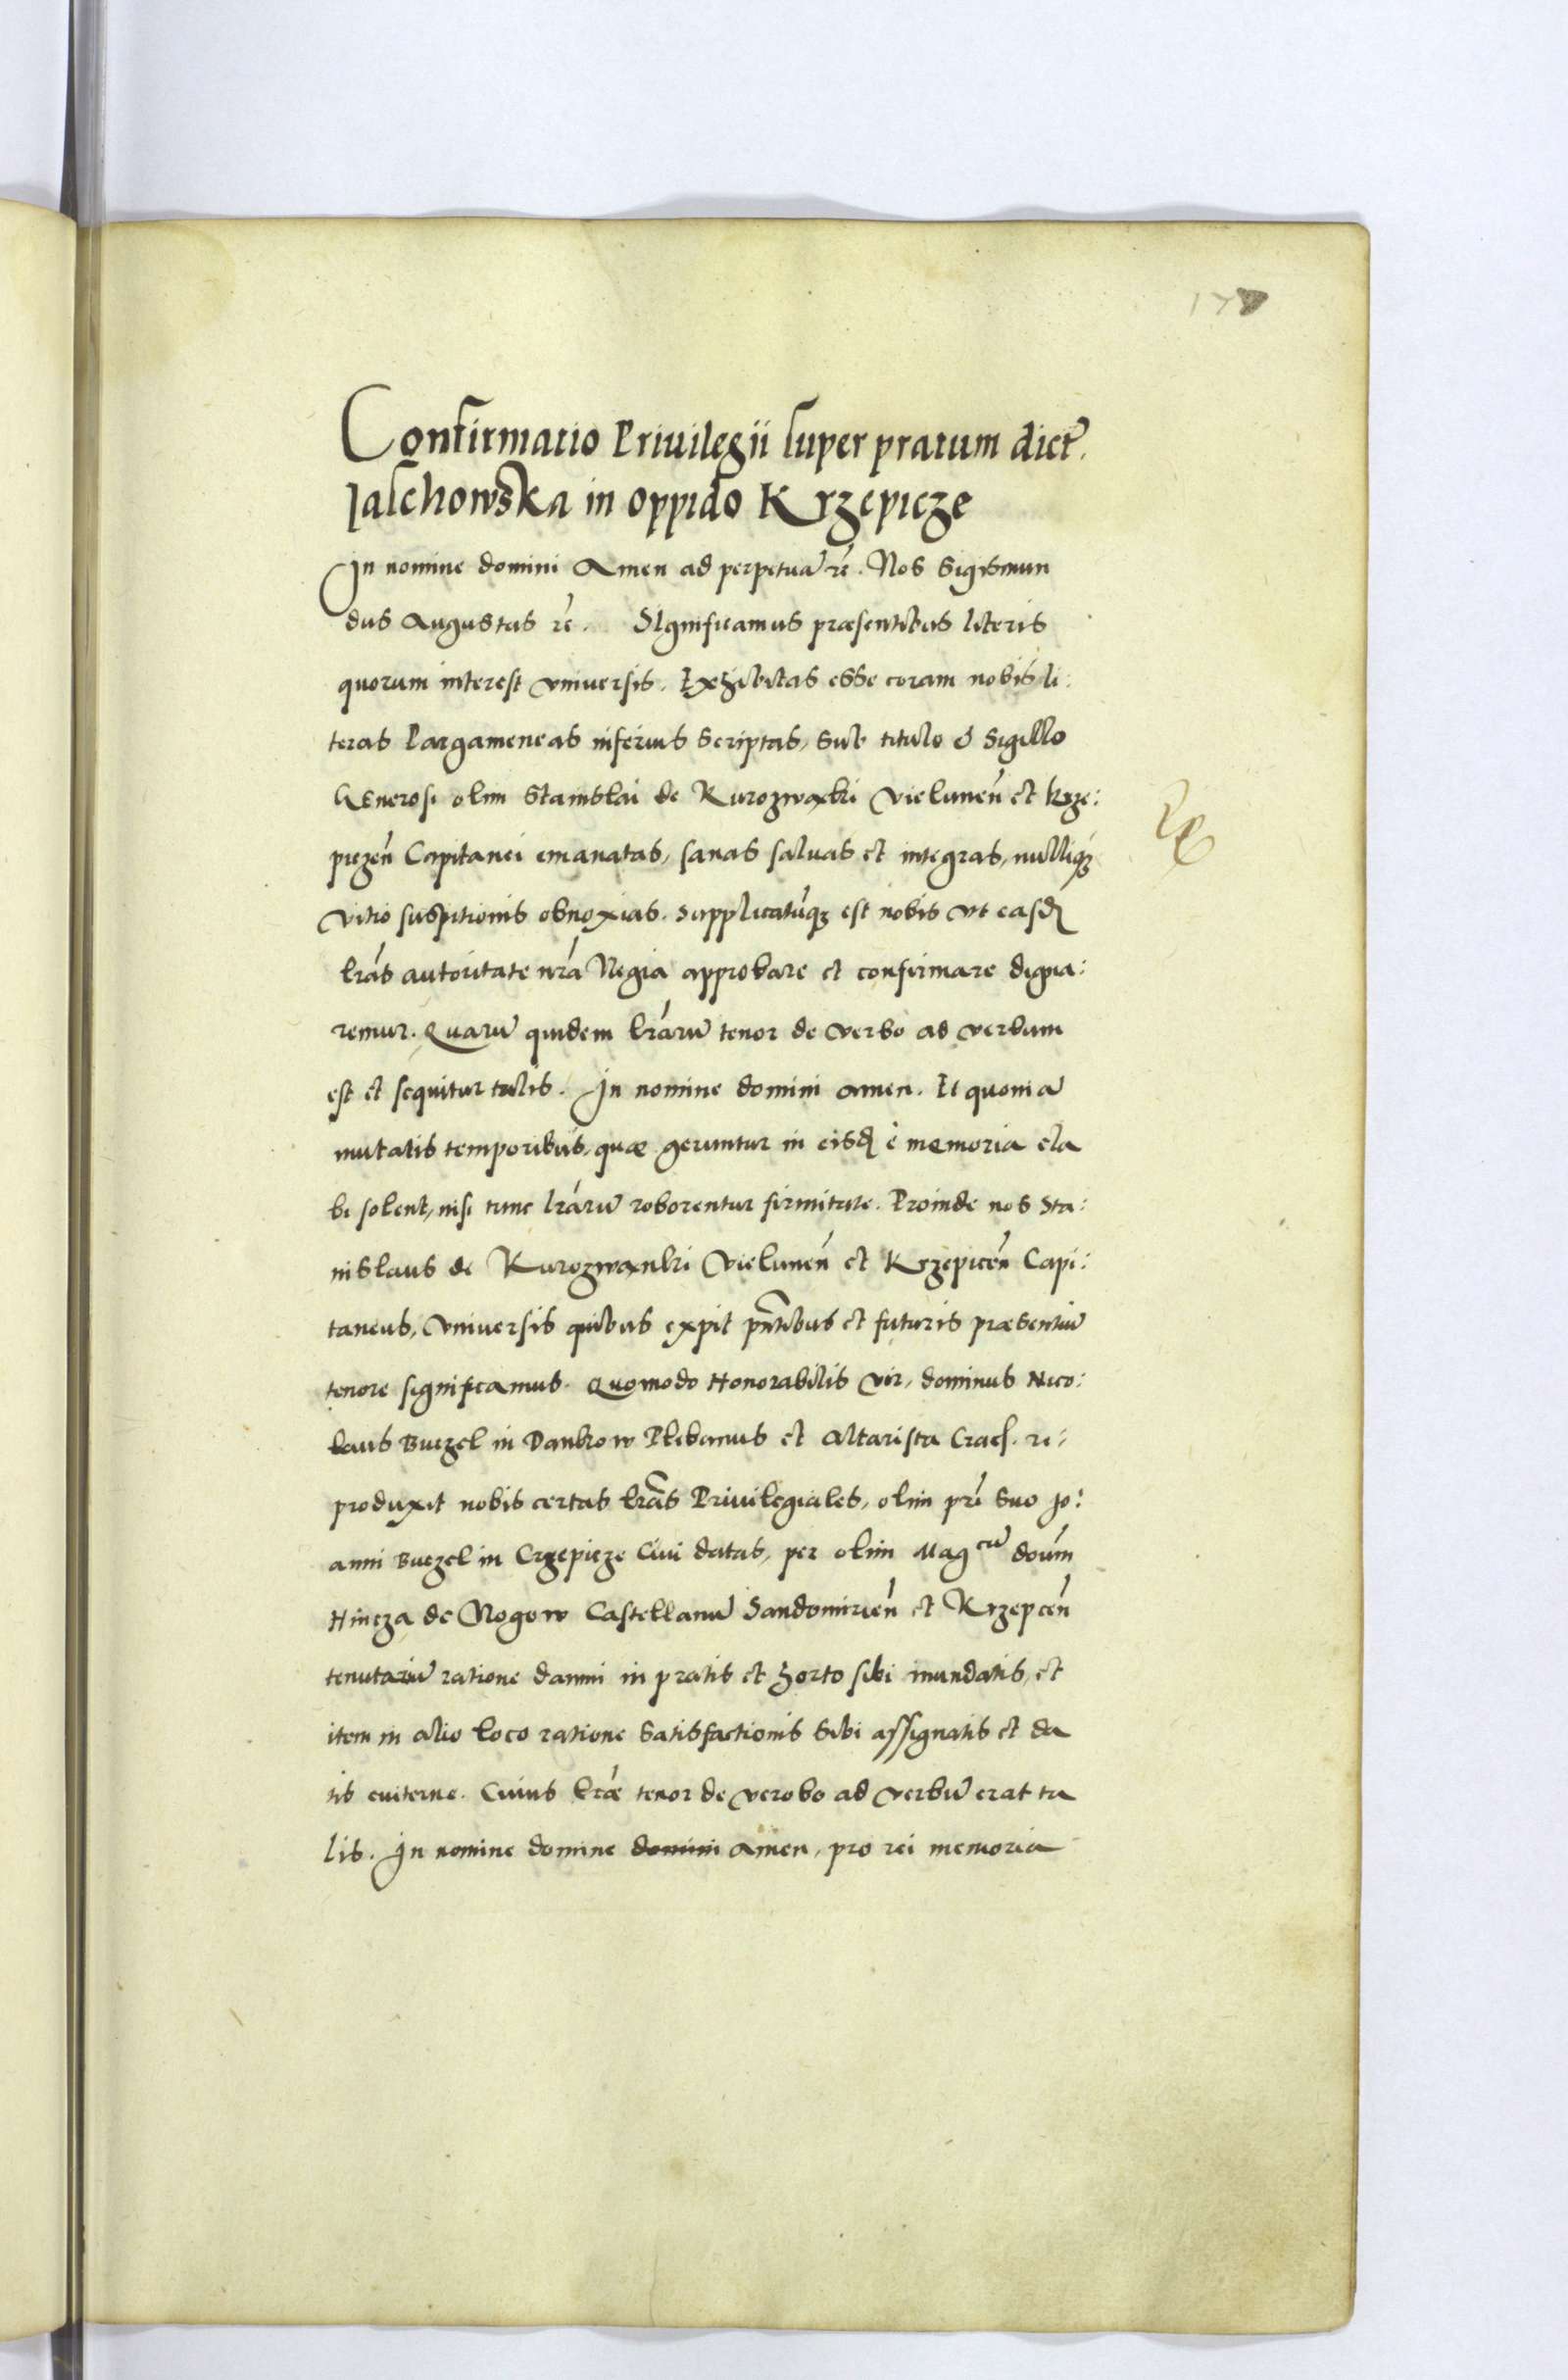 Confirmatio Priuilegii super pratum dict̃.
Jalchowska in oppido Krzepicze
In nomine domini Amen ad perpetuã rẽ. Nos Sigismun
dus Augustus rẽ. Significamus præsentibus literis
quorum interest vniuersis. Exhibitas esse coram nobis li:
teras Pargameneas inferius scriptas, sub titulo & sigillo
Generosi olim Stanislai de Kurozwaxki Vielunen̄ et krze:
piczen̄ Capitanei emanatas, sanas saluas et integras, nulliqꝫ
vitio suspitionis obnoxias. Supplicatũqꝫ est nobis vt easd
lrãs autoritate nrã Regia approbare et confirmare digna:
remur. Quarũ quidem lrãrũ tenor de verbo ad verbum
est et sequitur talis. In nomine domini amen. Et quoniã
mutatis temporibus, quæ geruntur in eisd è memoria ela
bi solent, nisi tunc lrãrũ roborentur firmitate. Proinde nos Sta:
nislaus de Kurozwanki Vielunen̄ et Krzepicen̄ Capi:
taneus, Vniuersis quibus expit pñtibus et futuris præsentiũ
tenore significamus. Quomodo Honorabilis vir, dominus Nico:
laus Buczel in Dankow Plebanus et Altarista Crac. re:
produxit nobis certas lrãs Priuilegiales, olim pri suo Jo:
anni Buczel in Crzepicze Ciui datas, per olim Mag cũ doñm
Hincza de Rogow Castellanũ Sandomirien̄ et Krzepcen̄
tenutariũ ratione damni in pratis et horto sibi inundatis, et
item in alio loco ratione satisfactionis sibi assignatis et da
tis euiterne. Cuius lræ tenor de verobo ad verbũ erat ta
lis. In nomine domine domini amen, pro rei memoria